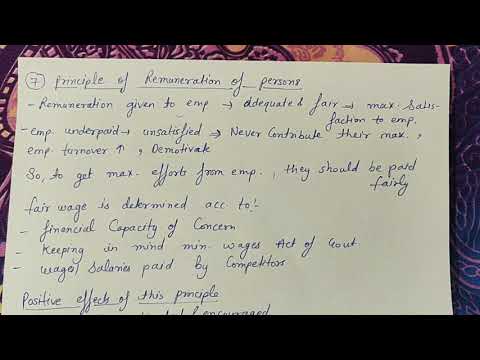 ⑦ Principle of Remuneration of persons
- Remuneration given to emp → adequate & fair → max. Satis-
faction to emp.
- Emp. underpaid → unsatisfied ⇒ Never Contribute their max.,
emp. turnover ↑, Demotivate
So, to get max. efforts from emp., they should be paid
fairly
Fair wage is determined acc to:-
- financial Capacity of Concern
- Keeping in mind min. wages Act of Govt.
- wages/Salaries paid by Competitors
Positive effects of this principle
encouraged